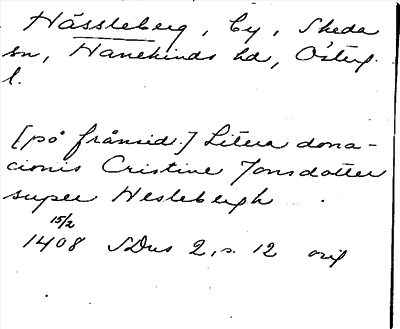 Hässleberg, by, Skeda
sn, Hanekinds hd, Österg.
l.
[på frånsid.] Litera dona-
cionis Cristine Jonsdotter
super Heslebergh.
15/2
1408 SDns 2, s. 12 orig